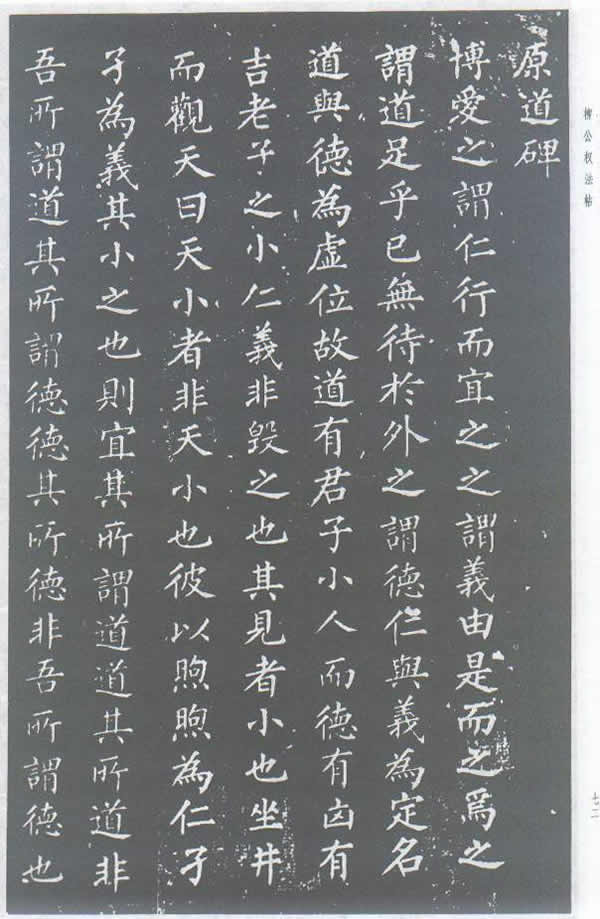 柳公权法帖
原道碑
博愛之謂仁行而宜之之謂義由是而之焉之
謂道足乎已無待於外之謂德仁與義為定名
道與德為虛位故道有君子小人而德有凶有
吉老子之小仁義非毀之也其見者小也坐井
而觀天曰天小者非天小也彼以煦煦為仁孑
孑為義其小之也則宜其所謂道道其所道非
吾所謂道其所謂德德其所德非吾所謂德也
七二